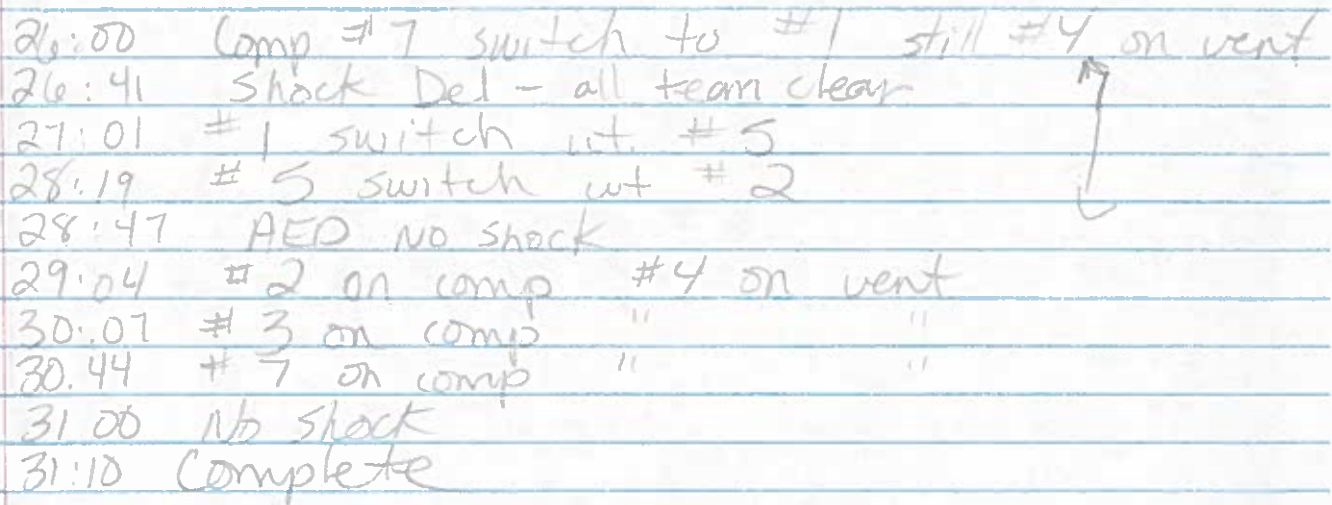 26:00 Comp #7 switch to #1 still #4 on vent
26:41 Shock Del - all team clear
27:01 #1 switch wt. #5
28:19 #5 switch wt #2
28:47 AED No shock
29:04 #2 on comp #4 on vent
30:07 #3 on comp " "
30.44 #7 on comp " "
31 00 No shock
31:10 Complete